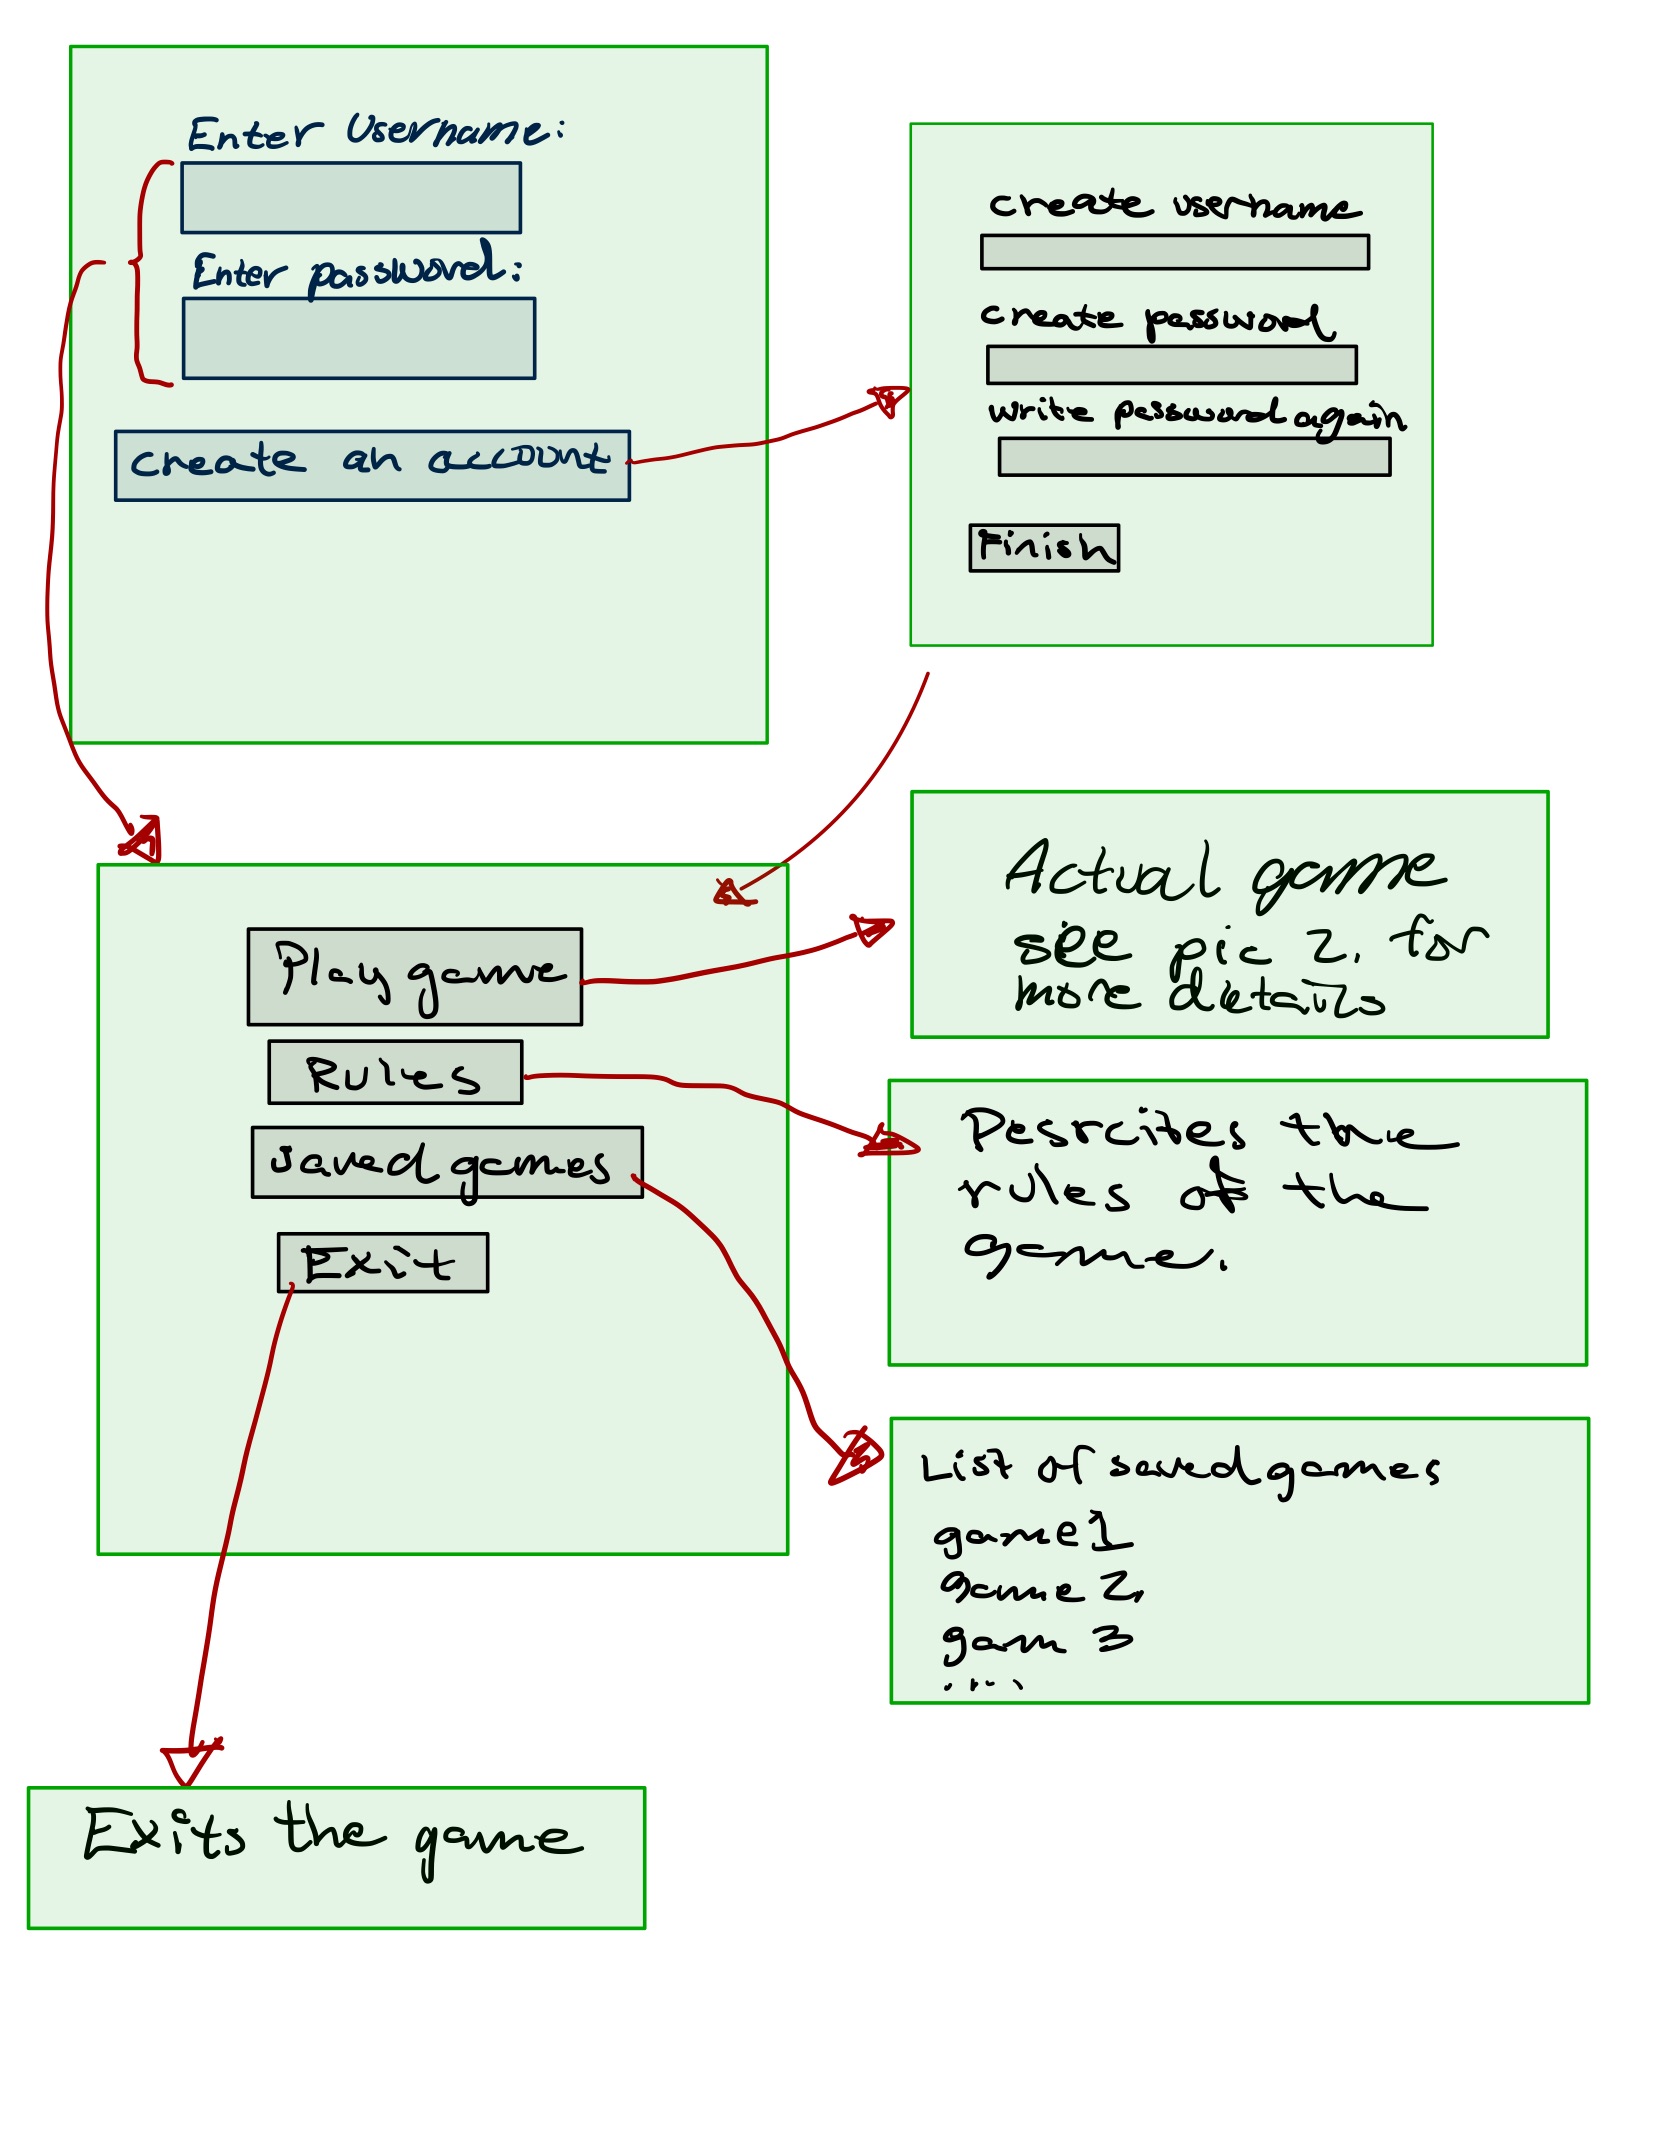 Enter Username:
Enter password:
create an account
create username
create password
write password again
Finish
Play game
Rules
saved games
Exit
Actual game
see pic 2. for
more details
Desrcites the
rules of the
game.
List of saved games
game 1
game 2
gam 3
....
Exits the game